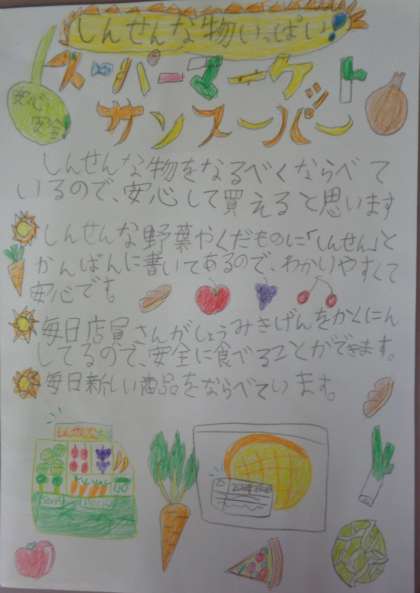 しんせんな物いっぱい!
スーパーマーケット
サンスーパー
安心
安全
しんせんな物をなるべくならべて
いるので、安心して買えると思います
しんせんな野菜やくだものに「しんせん」と
かんばんに書いてあるので、わかりやすくて
安心です。
毎日店員さんがしょうみきげんをかくにん
してるので、安全に食べることができます。
毎日新しい商品をならべています。